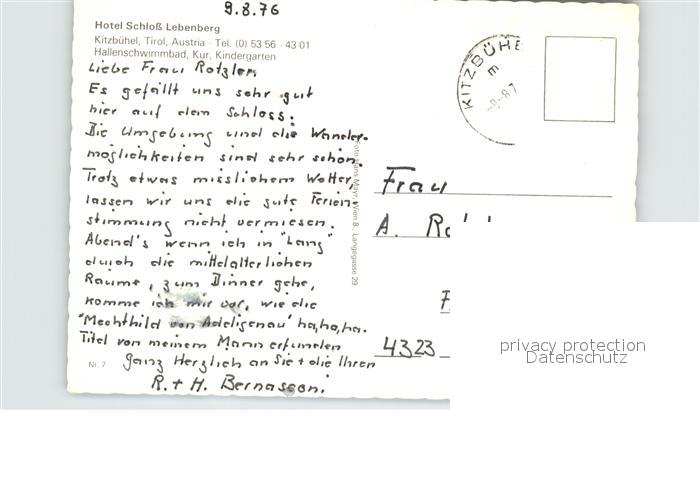 9.8.76
Hotel Schloß Lebenberg
Kitzbühel, Tirol, Austria - Tel. (0) 53 56 - 43 01
Hallenschwimmbad, Kur, Kindergarten
Liebe Frau Rotzler,
Es gefällt uns sehr gut
hier auf dem Schloss.
Die Umgebung und die Wander-
möglichkeiten sind sehr schön.
Trotz etwas misslichem Wetter,
lassen wir uns die gute Ferien-
stimmung nicht vermiesen.
Abend's wenn ich in "Lang"
durch die mittelalterlichen
Räume, zum Dinner gehe,
komme ich mir vor, wie die
"Mechthild von Adeligenau" ha,ha,ha.
Titel von meinem Mann erfunden
Ganz Herzlich an Sie + die Ihren
R. + H. Bernasconi.
Nr. 7
Foto Hans Mayr, Wien 8., Langegasse 29
KITZBÜHE
-9.-8.7
Frau
A. Ro
4323
privacy protection
Datenschutz